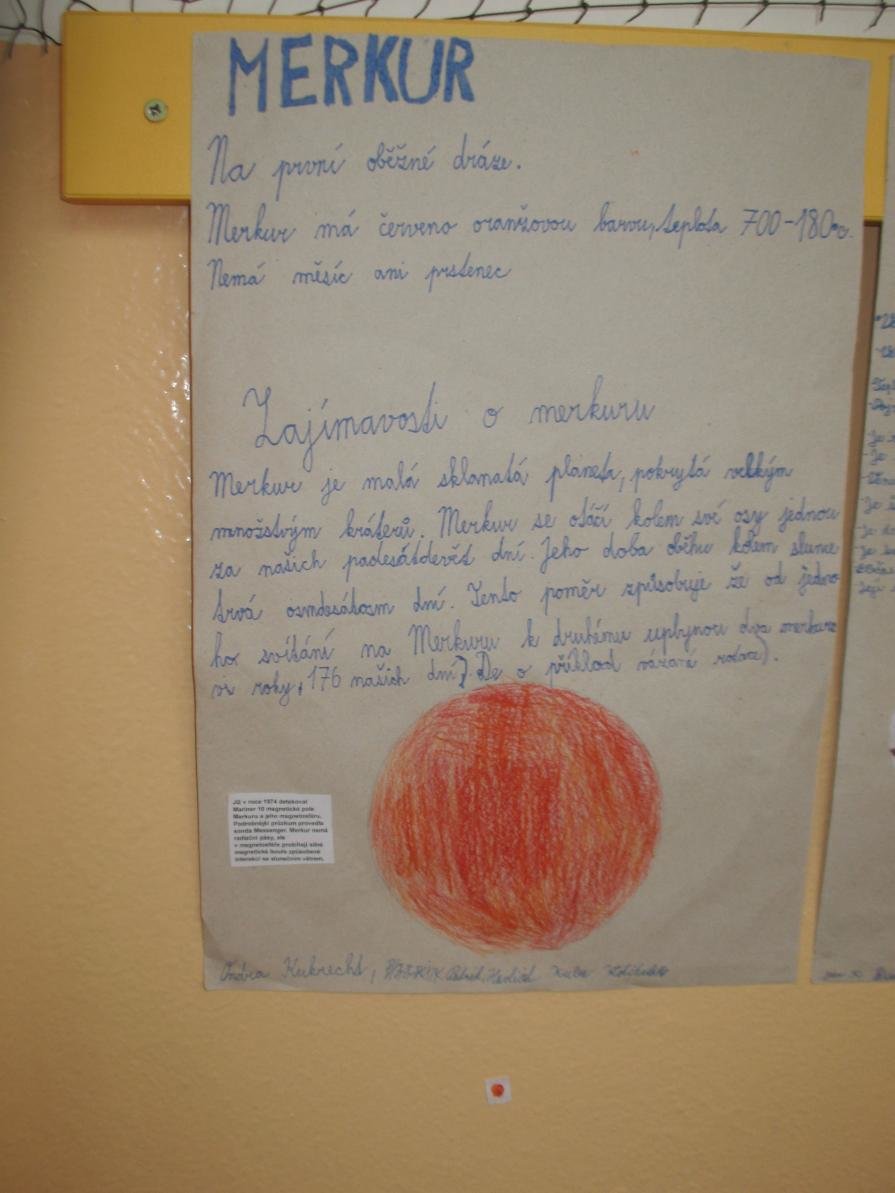 MERKUR
Na první oběžné dráze.
Merkur má červeno oranžovou barvu, teplota 700-180°C.
Nemá měsíc ani prstenec
Zajímavosti o merkuru
Merkur je malá sklanatá planeta, pokrytá velkým
množstvým kráterů. Merkur se otáčí kolem své osy jednou
za našich padesátdevět dní. Jeho doba oběhu kolem slunce
trvá osmdesátosm dní. Tento poměr způsobuje že od jedno
ho svítání na Merkuru k druhému uplynou dva merkuro
vi roky, 176 našich dní. De o příklad vázané rotace).
Již v roce 1974 detekoval
Mariner 10 magnetické pole
Merkuru a jeho magnetosféru.
Podrobnější průzkum provedla
sonda Messenger. Merkur nemá
radiační pásy, ale
v magnetosféře probíhají silné
magnetické bouře způsobené
interakcí se slunečním větrem.
Ondra Kubrecht, Kuba